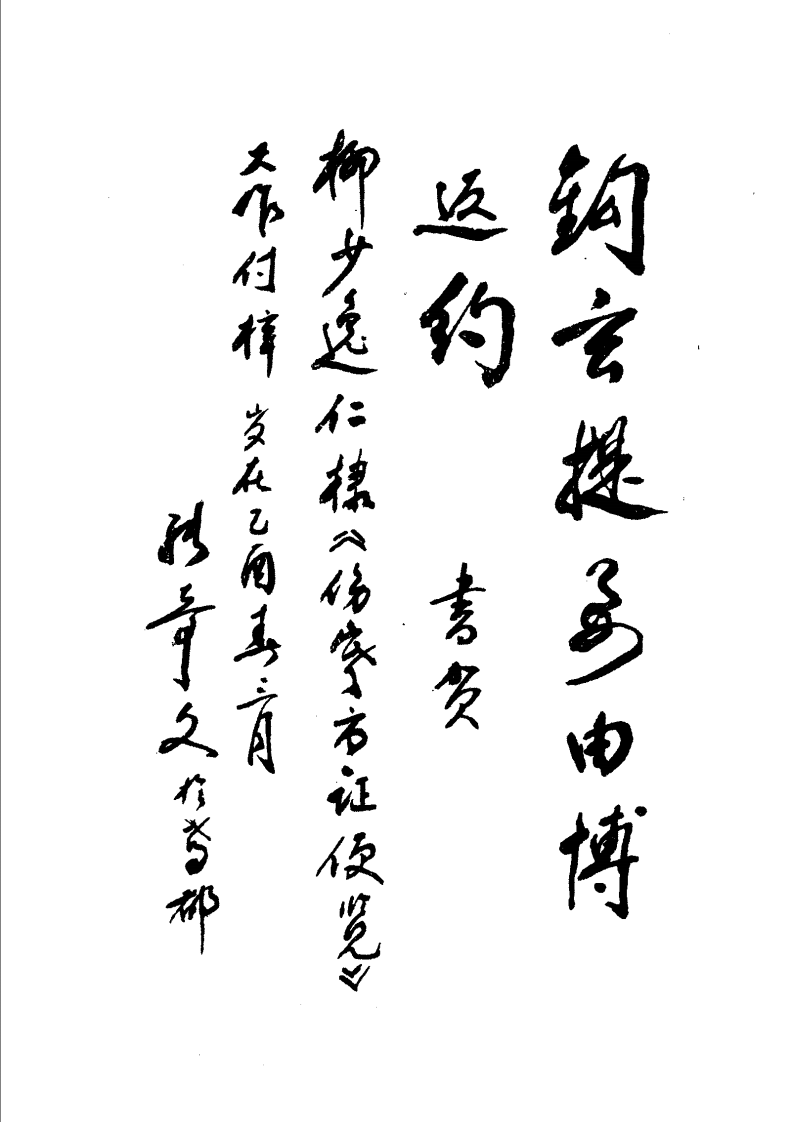 钩玄提要由博
返约 書贺
柳少逸仁棣《伤寒方证便览》
大作付梓 岁在乙酉春三月
张奇文於鸢都